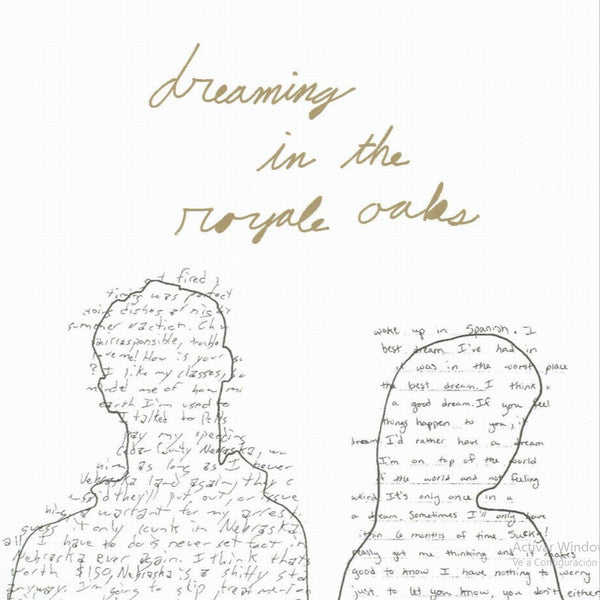 dreaming
in the
royale oaks
fired
was perfect
doing dishes at night
summer vaction.
irresponsible, trouble
me! How is your
? I like my classes, so
me of how
earth I'm used to
I talked to
pay my spending
Cedar County Nebraska,
him as long as I never
Nebraska land again they
they'll put, out, or issue
a warrant for my arrest
guess it only counts in Nebraska
all I have to do is never set foot in
Nebraska ever again. I think thats
worth $150, Nebraska is a shitty
anyway. I'm going to skip treatment
woke up in Spanish. I
best dream I've had in
it was in the worst place
the best dream. I think
a good dream. If you feel
things happen to you, it
dream I'd rather have a dream
I'm on top of the world
of the world and not feeling
weird It's only once in a
a dream. Sometimes I'll only have
it on 6 months of time. Sucks!
really got me thinking and it makes
good to know I have nothing to worry
just to let you know, you don't either
Activar Window
Ve a Configuración